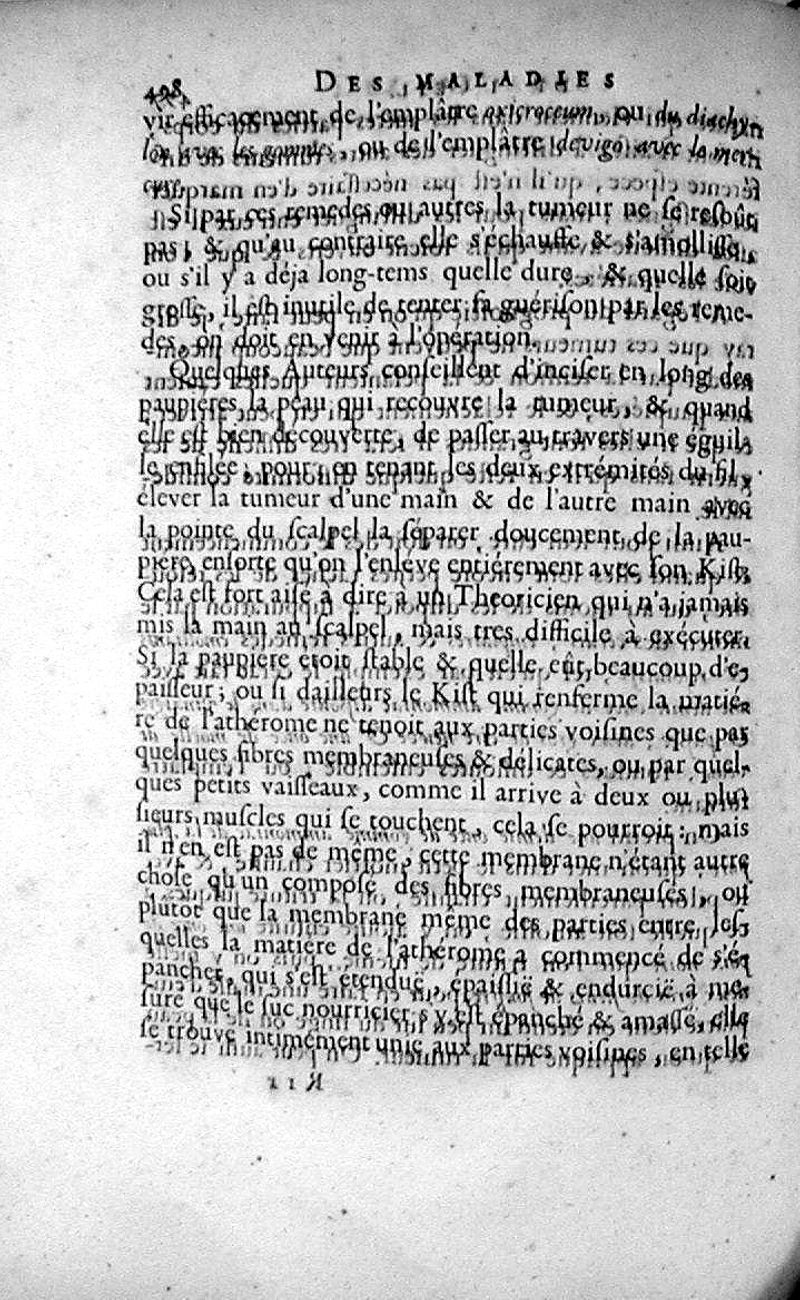 408 DES MALADIES
vir efficacement de l'emplâtre oxicroceum, ou du diachy-
lon avec les gommes, ou de l'emplâtre de vigo avec le mer-
cure.
Si par ces remedes ou autres la tumeur ne se resoût
pas, & qu'au contraire elle s'échauffe & s'amollisse,
ou s'il y a déja long-tems quelle dure, & quelle soit
grosse, il est inutile de tenter sa guérison par les reme-
des, on doit en venir à l'operation.
Quelques Auteurs conseillent d'inciser en long des
paupiéres la peau qui recouvre la tumeur, & quand
elle est bien découverte, de passer au travers une éguil-
le enfilée; pour, en tenant les deux extrémités du fil,
élever la tumeur d'une main & de l'autre main avec
la pointe du scalpel la séparer doucement de la pau-
piere, ensorte qu'on l'enléve entiérement avec son Kist.
Cela est fort aisé à dire à un Théoricien qui n'a jamais
mis la main au scalpel, mais tres difficile à exécuter.
Si la paupiere étoit stable & quelle eût beaucoup d'é-
paisseur; ou si dailleurs le Kist qui renferme la matié-
re de l'athérome ne tenoit aux parties voisines que par
quelques fibres membraneuses & délicates, ou par quel-
ques petits vaisseaux, comme il arrive à deux ou plu-
sieurs muscles qui se touchent, cela se pourroit: mais
il n'en est pas de même, cette membrane n'étant autre
chose qu'un composé des fibres membraneuses, ou
plutôt que la membrane même des parties entre les-
quelles la matiére de l'athérome a commencé de s'é-
pancher, qui s'est étenduë, épaissië & endurcië à me-
sure que le suc nourricier s'y est épanché & amassé, elle
se trouve intimément unie aux parties voisines, en telle